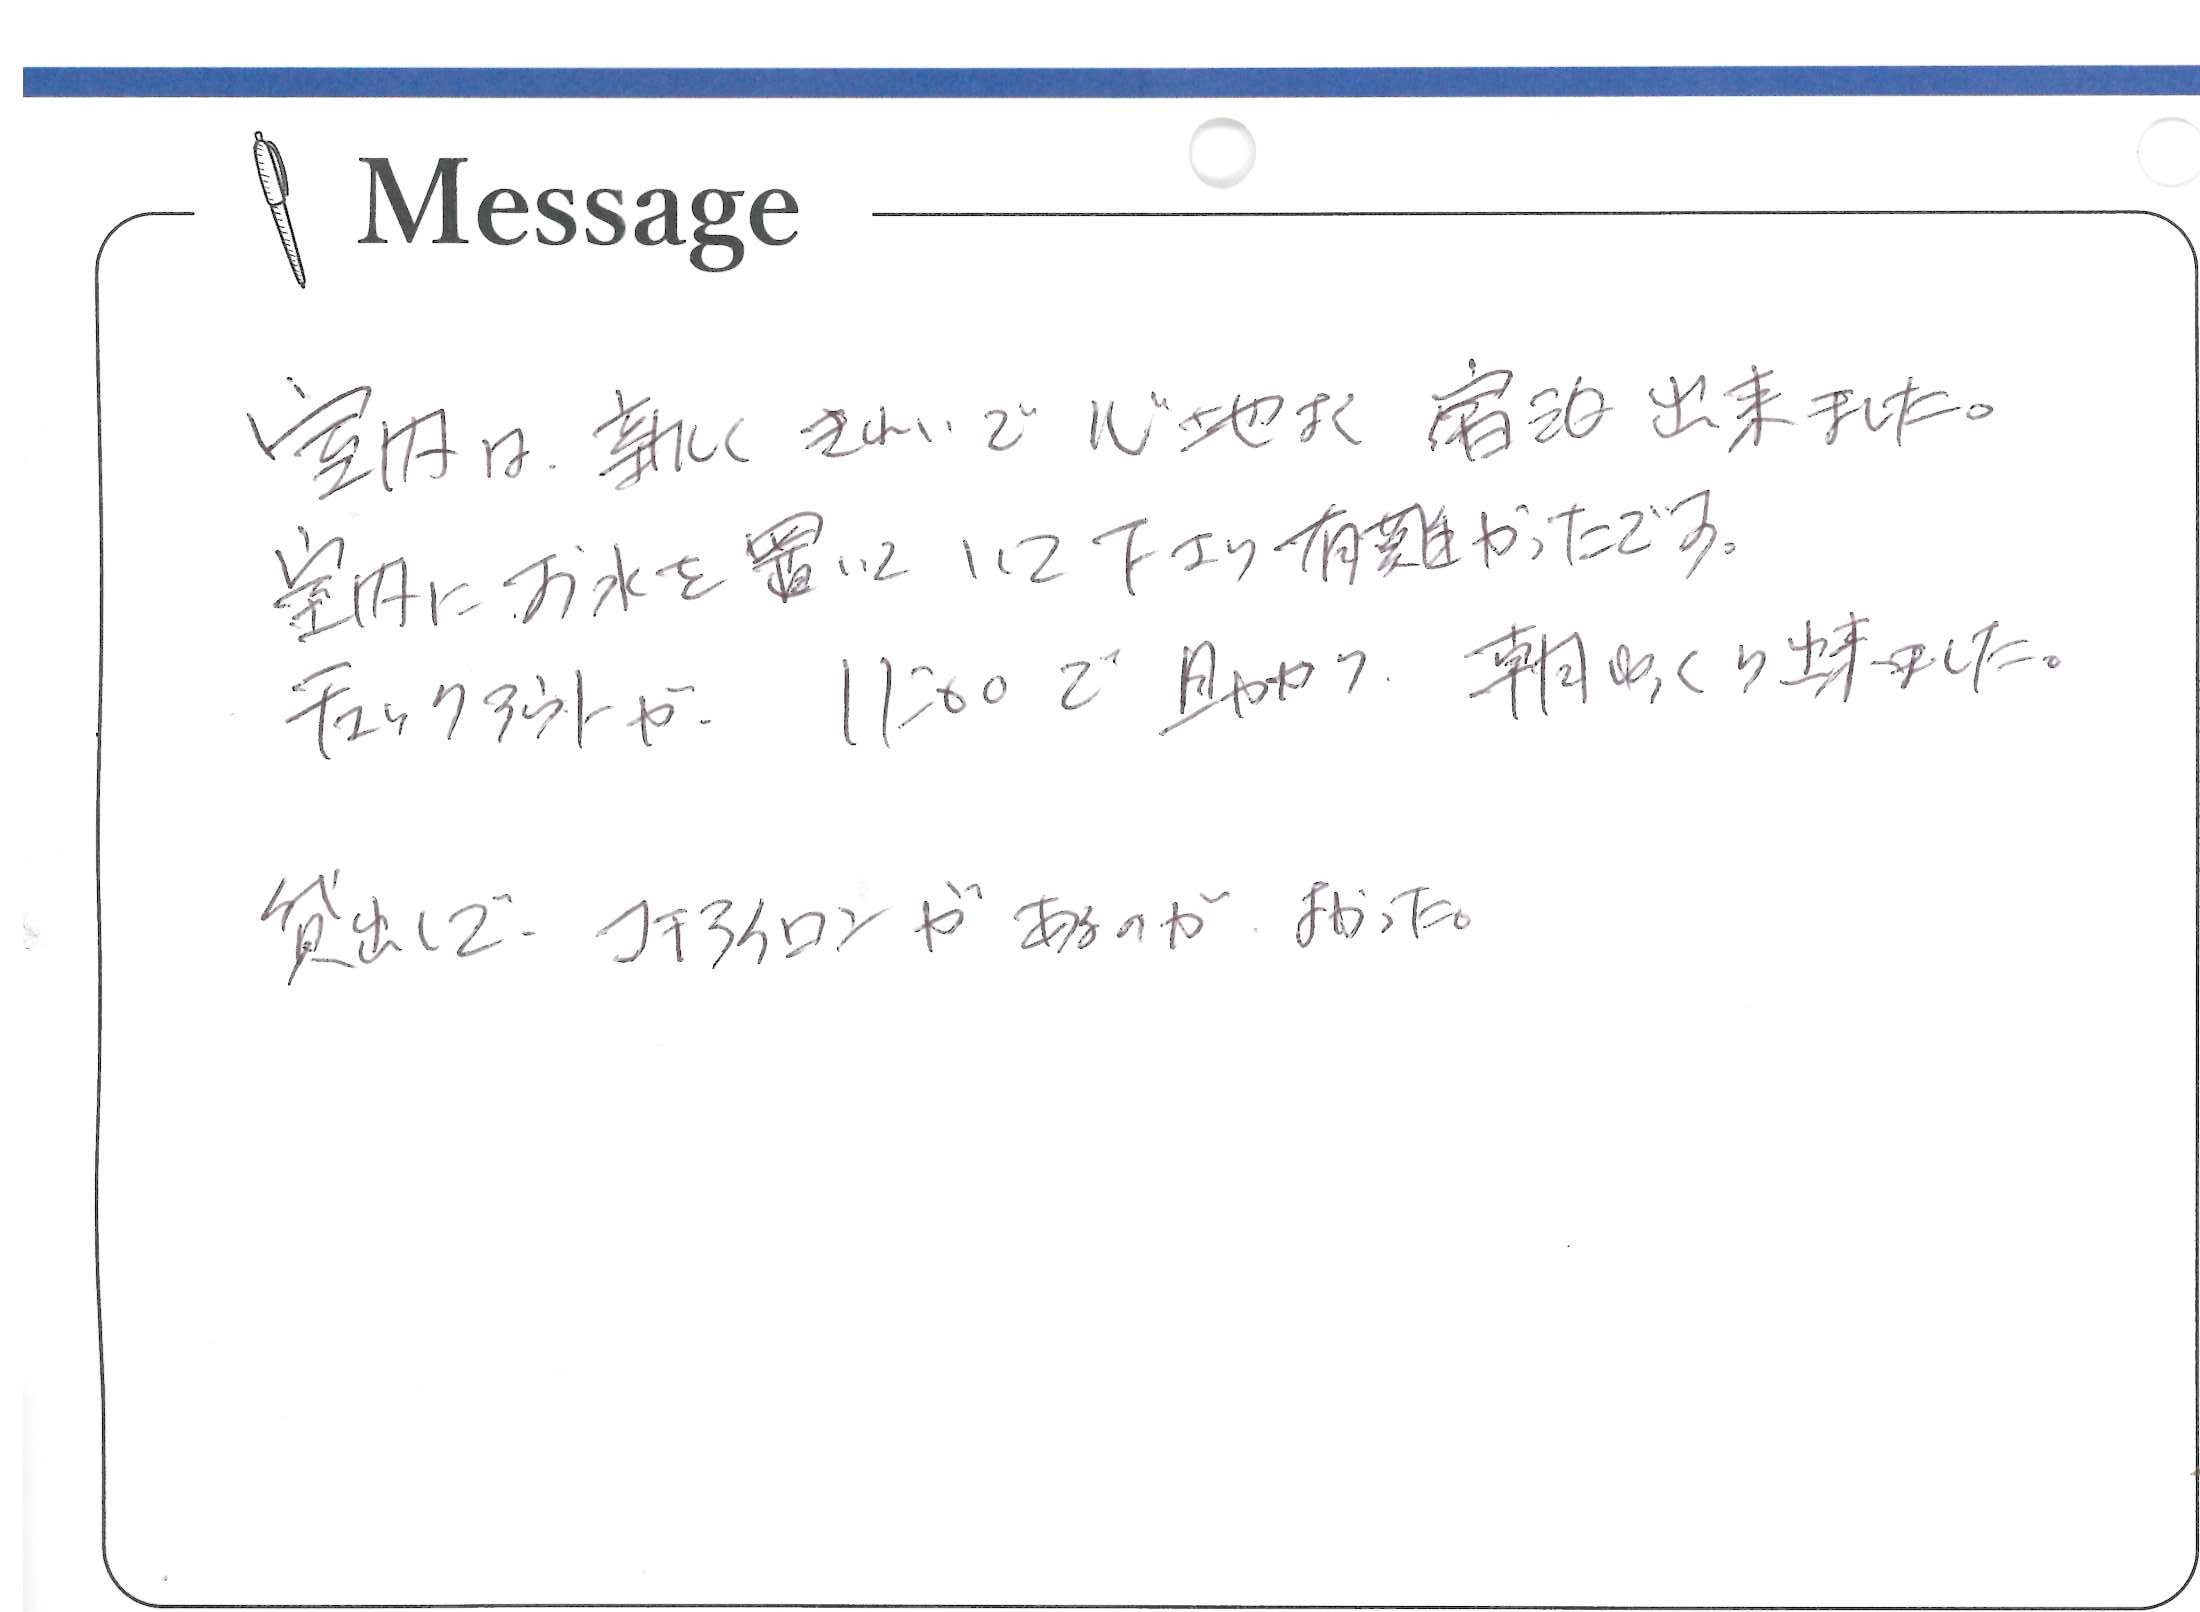 Message
室内は、新しくきれいで心地よく宿泊出来ました。
室内にお水を置いていて下さり有難かったです。
チェックアウトが、11:00で助かり、朝ゆっくり出来ました。
貸出しで、コテアイロンがあるのが、よかった。